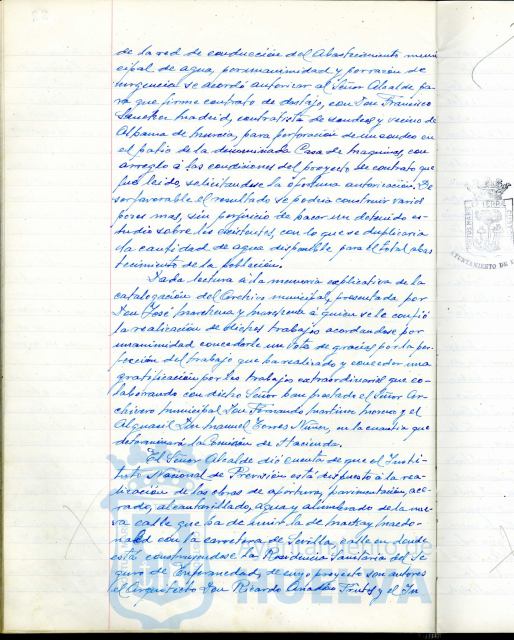 de la red de conducción del Abastecimiento muni
cipal de agua, por unanimidad y por razón de
urgencia se acordó autorizar al Señor Alcalde pa-
ra que firme contrato de destajo, con Don Francisco
Sanchez Madrid, contratista de sondeos y vecino de
Alhama de Murcia, para perforación de un sondeo en
el patio de la denominada Casa de Maquinas, con
arreglo á las condiciones del proyecto de contrato que
fue leido, solicitandose la oportuna autorización. De
ser favorable el resultado se podria construir varios
pozos mas, sin perjuicio de hacer un detenido es-
tudio sobre los existentes, con lo que se duplicaria
la cantidad de agua disponible para el total abas
tecimiento de la población.
Dada lectura á la memoria explicativa de la
catalogación del Archivo municipal, presentada por
Don José Marchena y Marchena á quien se le confió
la realización de dichos trabajos acordandose por
unanimidad concederle un voto de gracias por la per-
fección del trabajo que ha realizado y conceder una
gratificación por los trabajos extraordinarios que co-
laborando con dicho Señor han prestado el Señor Ar-
chivero municipal Don Fernando Martinez Moreno y el
Alguacil Don Manuel Torres Nuñez, en la cuantia que
determinará la Comisión de Hacienda.
El Señor Alcalde dió cuenta de que el Insti-
tuto Nacional de Previsión está dispuesto á la rea-
lización de las obras de apertura, pavimentación, ace-
rado, alcantarillado, agua y alumbrado de la nue-
va calle que ha de unir la de Mackay Macdo-
nald con la carretera de Sevilla, calle en donde
está construyendose la Residencia Sanitaria del Se
guro de Enfermedad, de cuyo proyecto son autores
el Arquitecto Don Ricardo Anadón Frutos y el In
AYUNTAMIENTO DE
HUELVA